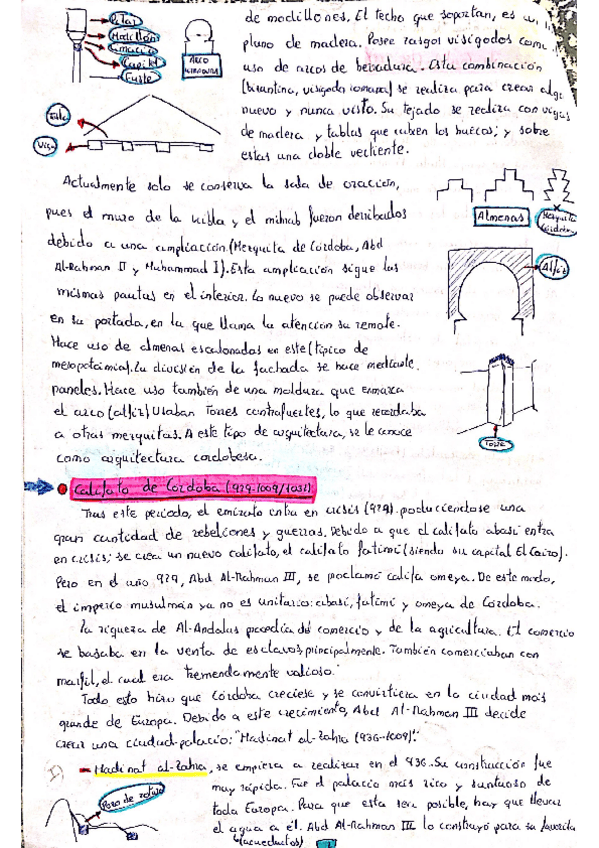 Pilar
Modillón
Cimacio
Capitel
Fuste
ARCO
HERRADURA
de modillones. El techo que soportan, es un
plano de madera. Posee rasgos visigodos como
uso de arcos de herradura. Esta combinación
(bizantina, visigoda romana) se realiza para crear algo
nuevo y nunca visto. Su tejado se realiza con vigas
de madera y tablas que cubren los huecos; y sobre
estas una doble vertiente.
Tabla
Viga
Actualmente solo se conserva la sala de oración,
pues el muro de la kibla y el mihrab fueron derribados
debido a una ampliación. (Mezquita de Córdoba, Abd
Al-Rahman II y Muhammad I). Esta ampliación sigue las
mismas pautas en el interior. Lo nuevo se puede observar
en su portada, en la que llama la atención su remate.
Hace uso de almenas escalonadas en este (típico de
mesopotamia). La división de la fachada se hace mediante
paneles. Hace uso también de una moldura que enmarca
el arco (alfiz) Usaban Torres contrafuertes, lo que recordaba
a otras mezquitas. A este tipo de arquitectura, se le conoce
como arquitectura cordobesa.
Almenas
Mezquita
Córdoba
Alfiz
Torre
Califato de Córdoba (929-1009/1031)
Tras este periodo, el emirato entra en crisis (929) produciendose una
gran cantidad de rebeliones y guerras. Debido a que el califato abasí entra
en crisis; se crea un nuevo califato, el califato fatimí (siendo su capital El Cairo).
Pero en el año 929, Abd Al-Rahman III, se proclamó califa omeya. De este modo,
el imperio musulmán ya no es unitario: abasí, fatimí y omeya de Córdoba.
La riqueza de Al-Andalus procedía del comercio y de la agricultura. El comercio
se basaba en la venta de esclavos, principalmente. También comerciaban con
marfil, el cual era tremendamente valioso.
Todo esto hizo que Córdoba creciese y se convirtiera en la ciudad más
grande de Europa. Debido a este crecimiento, Abd Al-Rahman III decide
crear una ciudad-palacio: "Madinat al-Zahra (936-1009)".
Madinat al-Zahra, se empieza a realizar en el 936. Su construcción fue
muy rápida. Fue el palacio más rico y suntuoso de
toda Europa. Para que esta sea posible, hay que llevar
el agua a él. Abd Al-Rahman III lo construyó para su favorita
(acueductos)